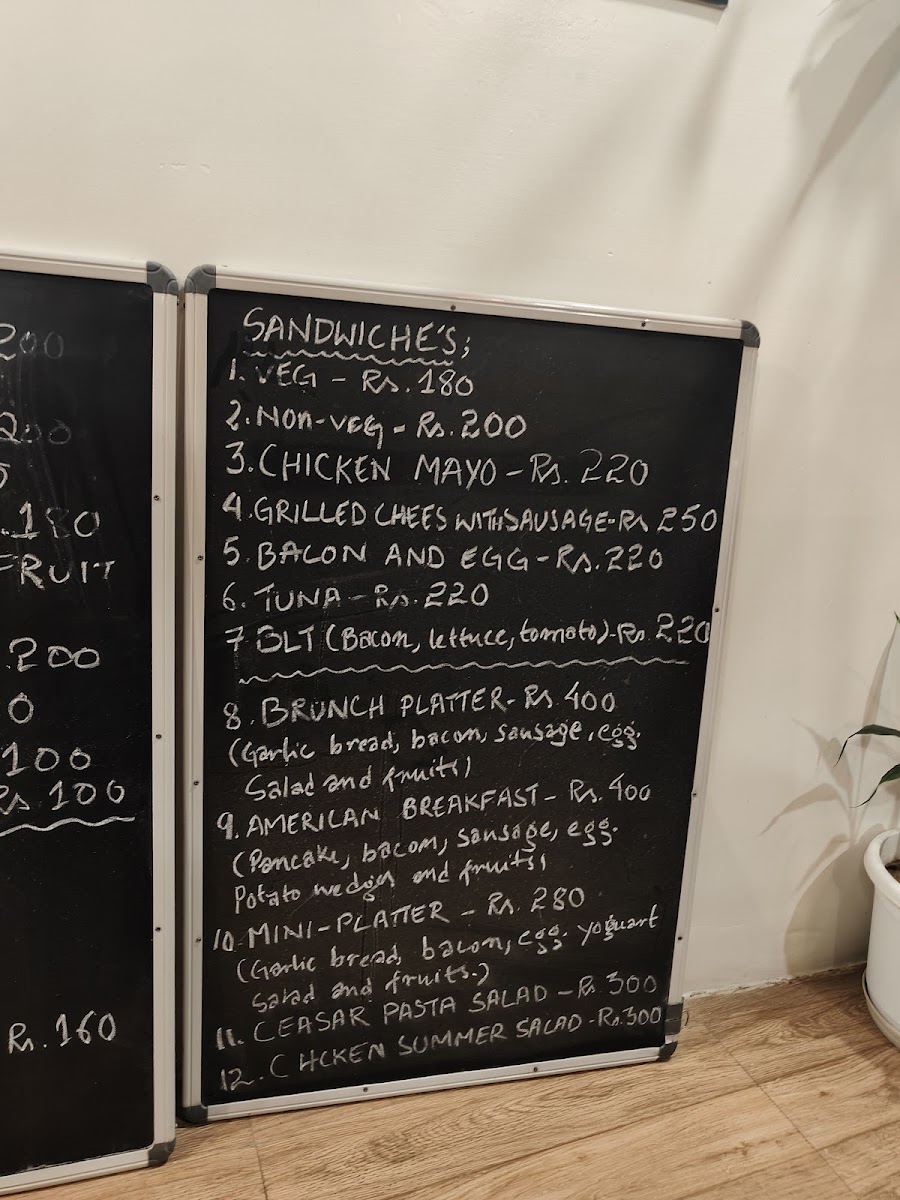 200
200
5
.180
FRUIT
.200
0
100
Rs 100
Rs.160
SANDWICHE'S;
1. VEG - Rs.180
2. NON-VEG - Rs.200
3. CHICKEN MAYO - Rs.220
4. GRILLED CHEES WITH SAUSAGE - Rs 250
5. BACON AND EGG - Rs.220
6. TUNA - Rs.220
7. BLT (Bacon, lettuce, tomato) - Rs. 220
8. BRUNCH PLATTER - Rs.400
(Garlic bread, bacon, sausage, egg.
Salad and fruits)
9. AMERICAN BREAKFAST - Rs.400
(Pancake, bacon, sausage, egg.
Potato wedges and fruits)
10. MINI-PLATTER - Rs. 280
(Garlic bread, bacon, egg. yoguart
salad and fruits.)
11. CEASAR PASTA SALAD - Rs.300
12. CHCKEN SUMMER SALAD - Rs.300